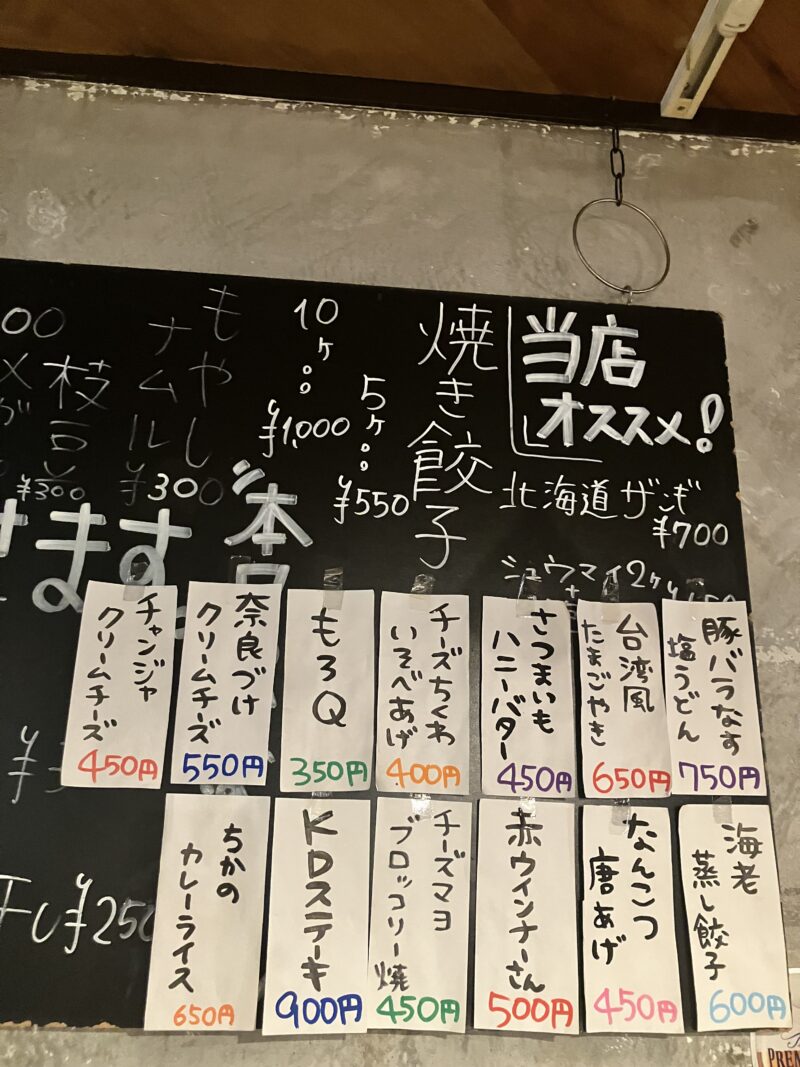 当店
オススメ!
北海道ザンギ
¥700
シュウマイ2ケ
焼き餃子
5ケ
¥550
10ケ
¥1,000
もやし
ナムル
¥300
枝豆
¥300
00
ます
本日
豚バラなす
塩うどん
750円
台湾風
たまごやき
650円
さつまいも
ハニーバター
450円
チーズちくわ
いそべあげ
400円
もろQ
350円
奈良づけ
クリームチーズ
550円
チャンジャ
クリームチーズ
450円
海老
蒸し餃子
600円
なんこつ
唐あげ
450円
赤ウインナーさん
500円
チーズマヨ
ブロッコリー焼
450円
KDステーキ
900円
ちかの
カレーライス
650円
¥250
PREM